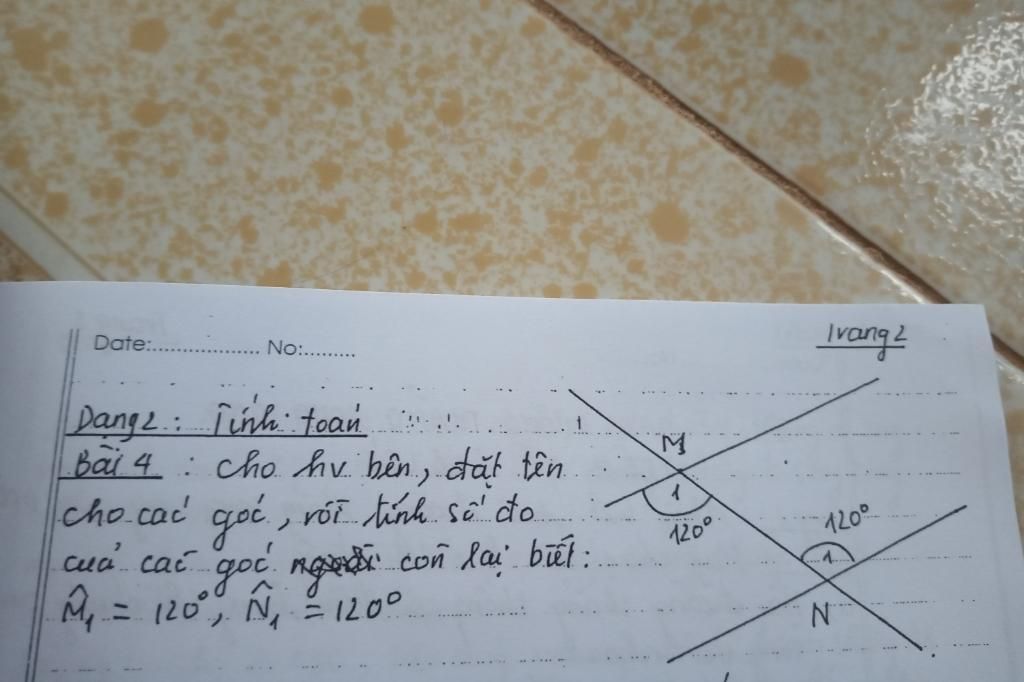 Trang 2
Date:.................. No:.........
Dạng 2 : Tính toán
Bài 4 : cho hv bên, đặt tên
cho các góc, rồi tính số đo
của các góc còn lại biết:
M̂₁ = 120°, N̂₁ = 120°
M
1
120°
120°
1
N